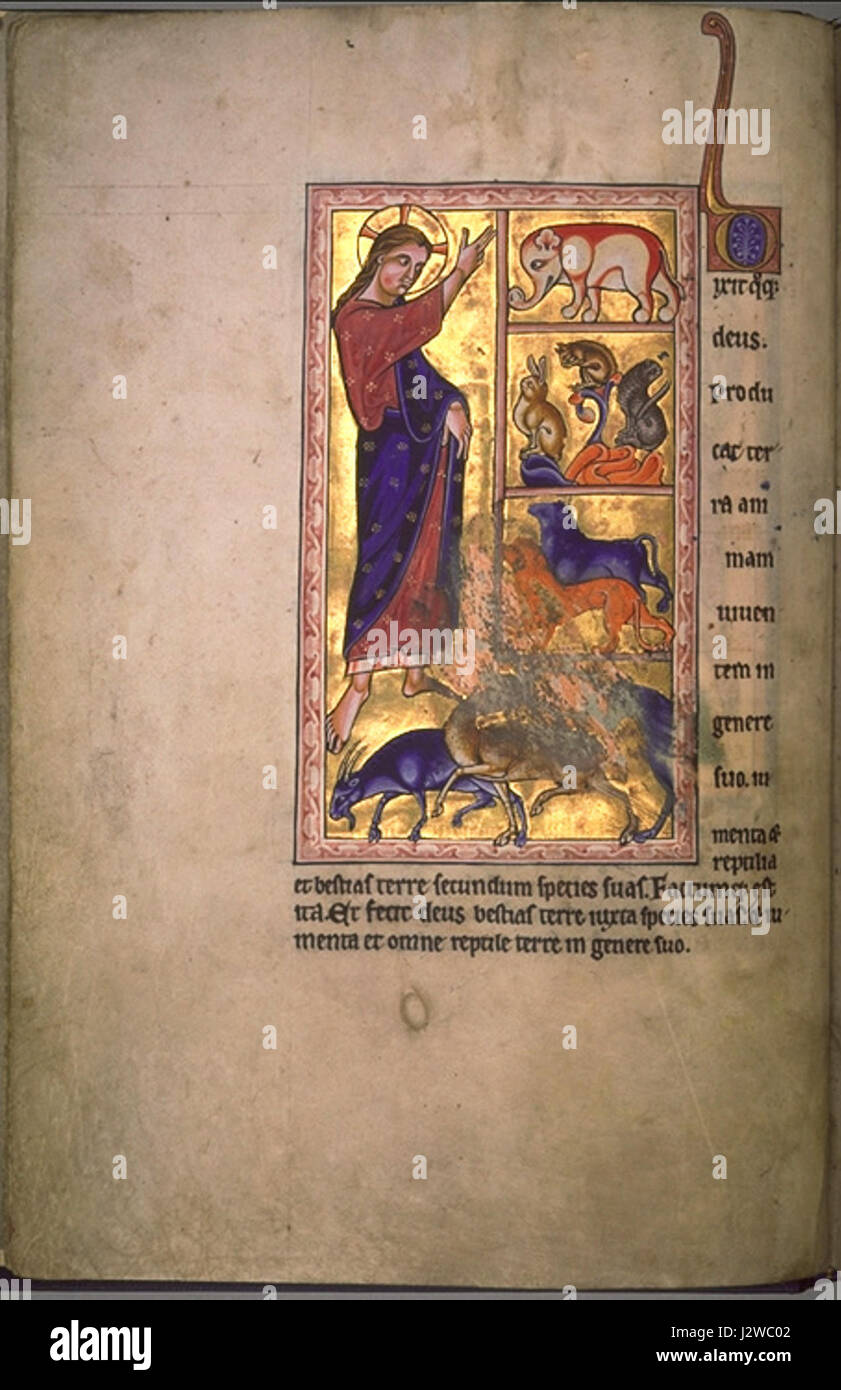 Dixit q̄q:
deus.
produ
cat ter
ra am
mam
uiuen
tem in
genere
suo. iu
menta &
reptilia
et bestias terre secundum species suas. Factum est
ita. Et fecit deus bestias terre iuxta species suas iu
menta et omne reptile terre in genere suo.
alamy
alamy
Image ID: 2JWC02
www.alamy.com